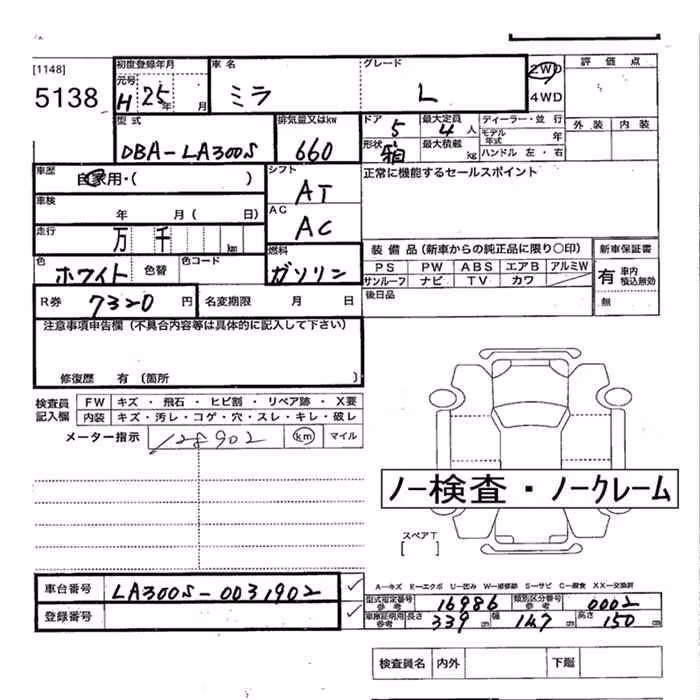 [1148]
5138
初度登録年月
元号
H 25年 月
車名
ミラ
グレード
L
2WD
4WD
評価点
外装 内装
型式
DBA-LA300S
排気量又はkw
660
ドア 5
形状 箱
最大定員 4人
最大積載 kg
ディーラー・並行
モデル年式 年
ハンドル 左・右
車歴
自家用・( )
シフト
AT
正常に機能するセールスポイント
車検
年 月( 日)
AC
AC
走行
万 千 km
装備品(新車からの純正品に限り○印)
新車保証書
色
ホワイト
色替
色コード
燃料
ガソリン
PS PW ABS エアB アルミW
サンルーフ ナビ TV カワ
有 車内積込無効
無
後日品
R券 7320円
名変期限 月 日
注意事項申告欄(不具合内容等は具体的に記入して下さい)
修復歴 有(箇所 )
検査員記入欄
FW キズ・飛石・ヒビ割・リペア跡・X要
内装 キズ・汚レ・コゲ・穴・スレ・キレ・破レ
メーター指示 128902 km マイル
ノー検査・ノークレーム
スペアT
[ ]
A−キズ E−エクボ U−凹み W−補修跡 S−サビ C−腐食 XX−交換済
車台番号 LA300S-0031902
登録番号
型式指定番号参考 16986
類別区分番号参考 0002
車庫証明用参考 長さ 339cm 幅 147cm 高さ 150cm
検査員名 内外 下廻